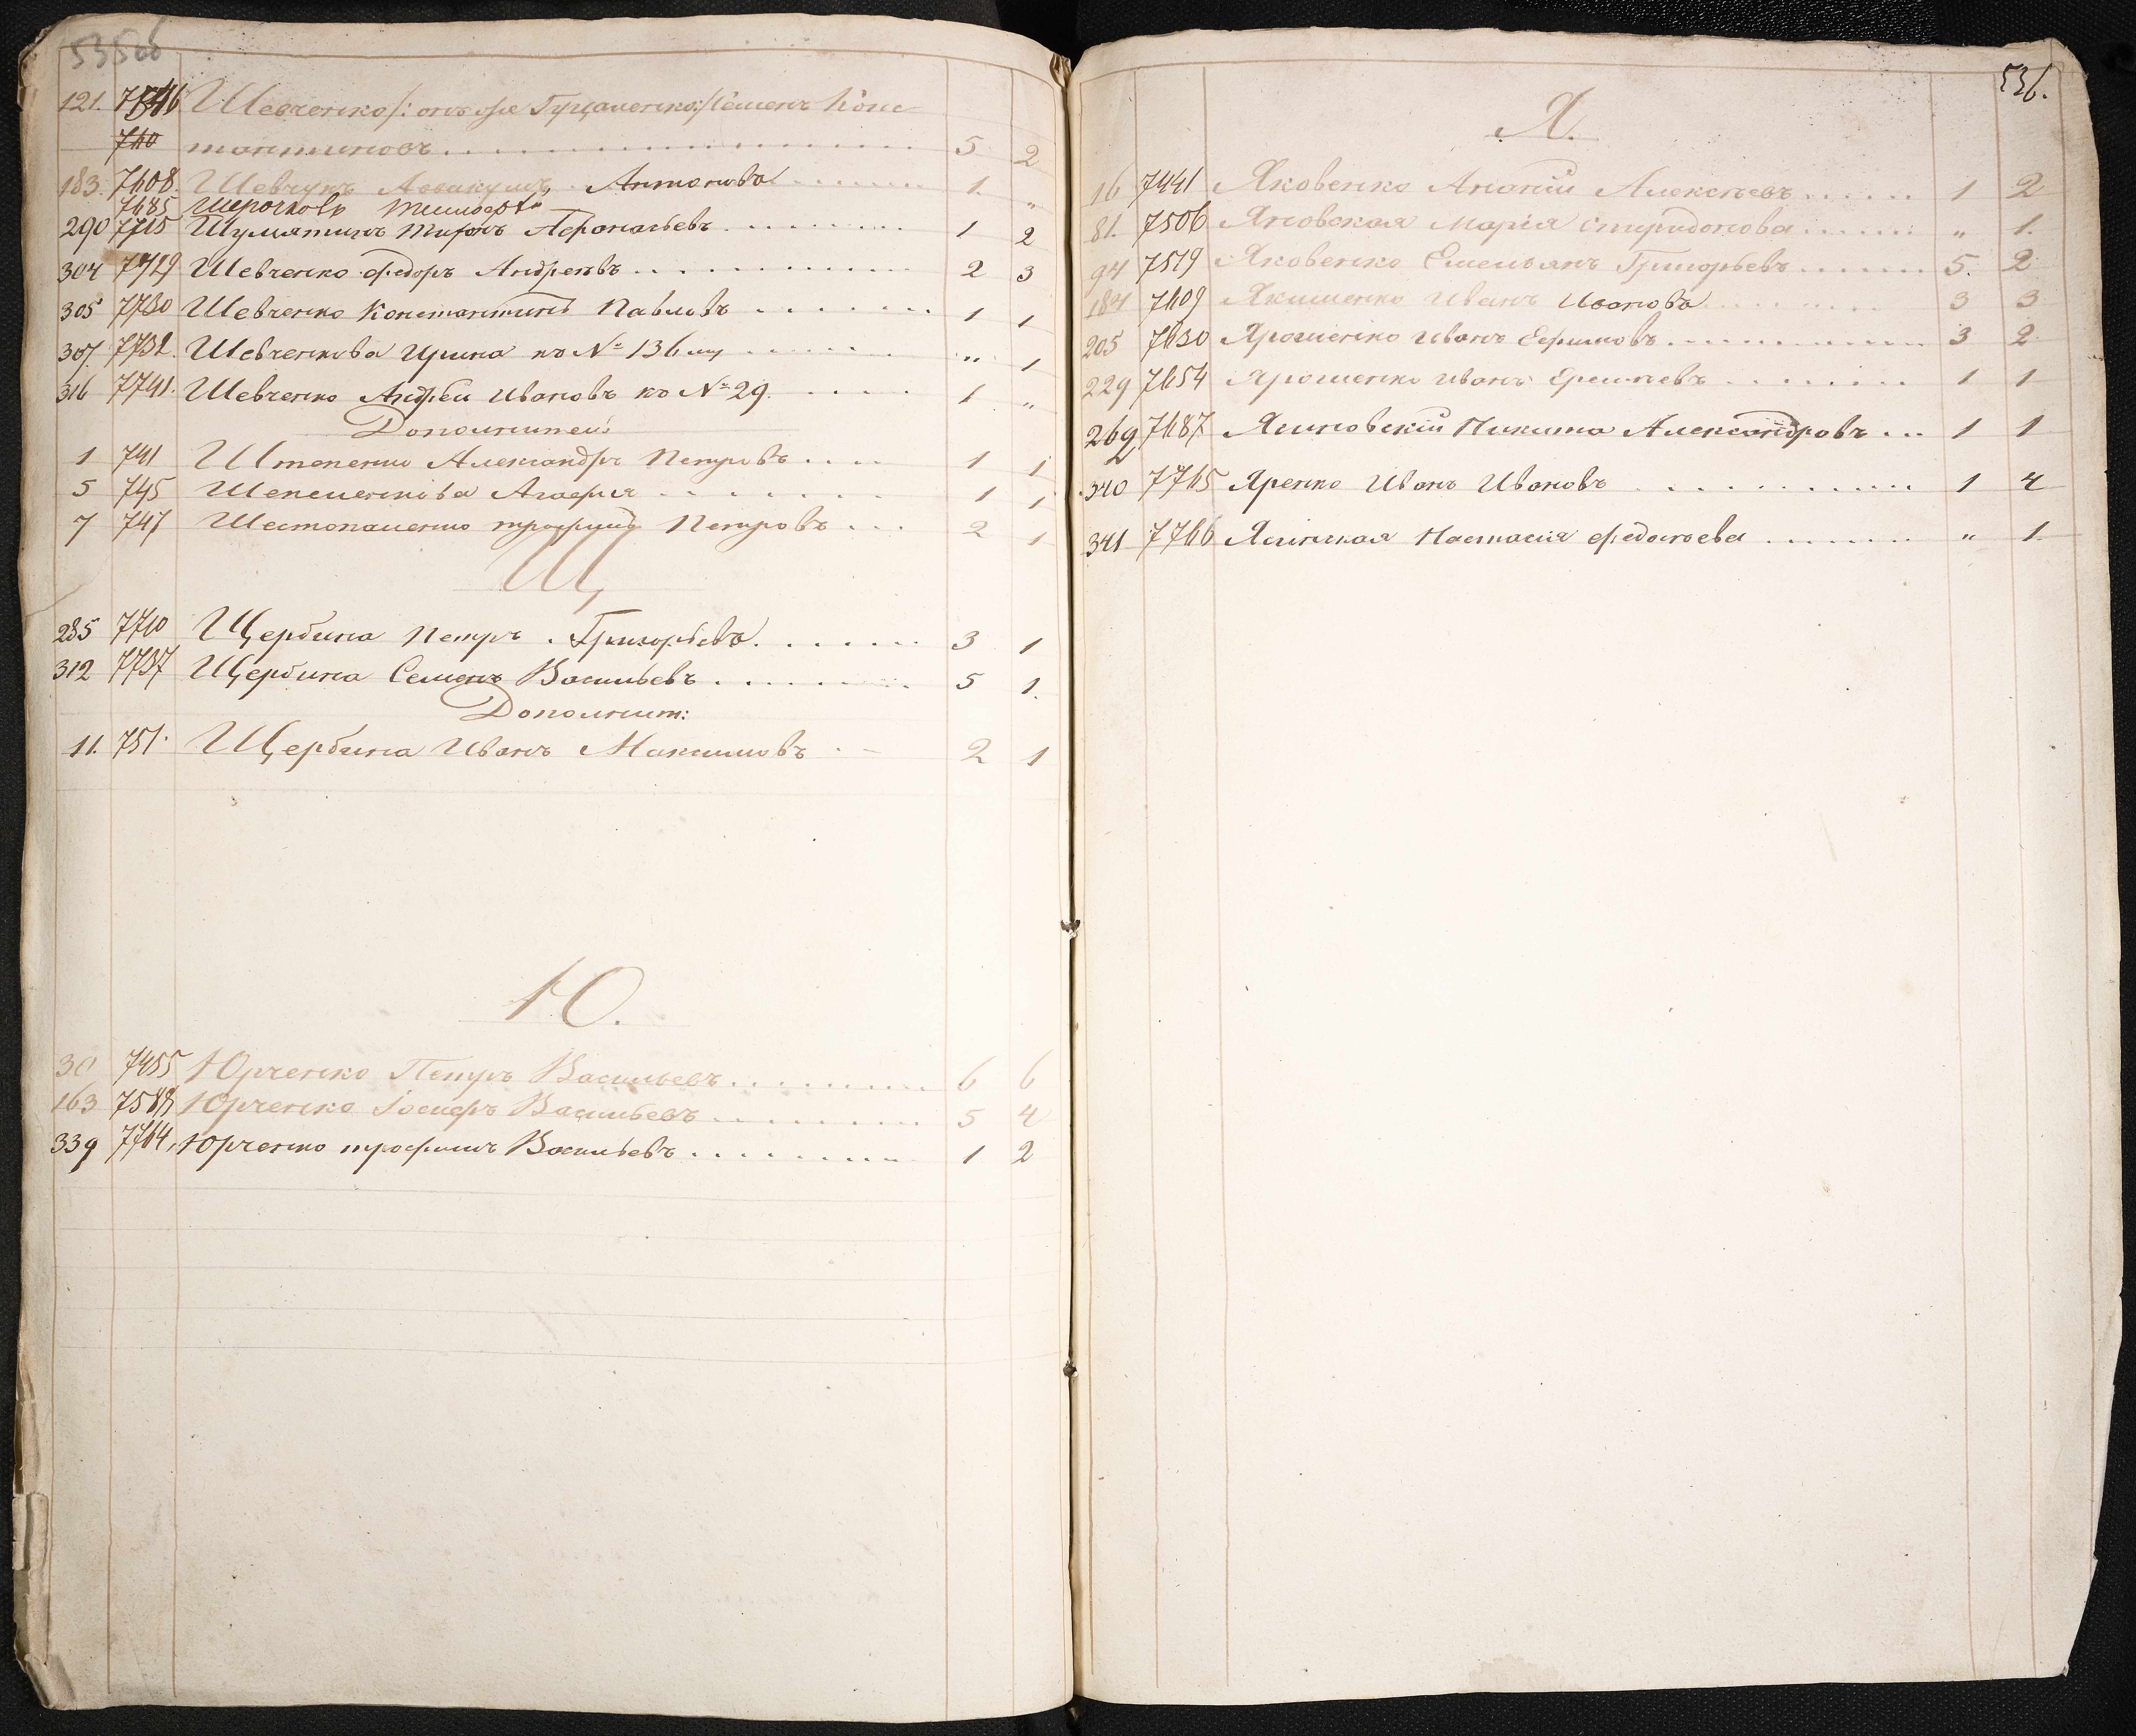 535об
121. 7546 Шевченко /: онъ же Гуцаленко :/ Семенъ Конс
740
тантиновъ 5 2
183. 7608. Шевчукъ Аввакумъ Антоновъ 1. „
7685 Тимофей
290 7715 Шумятинъ Тифонъ Афонасьевъ 1 2
304 7729 Шевченко Федоръ Андреевъ 2 3
305 7730 Шевченко Константинъ Павловъ 1 1
307. 7732. Шевченкова Ирина по № 136му „ 1
316 7741. Шевченко Андрей Ивановъ по № 29. 1 „
1 741 Александръ Петровъ 1 1
5 745 Агафия 1 1
7 747 Шестопаленко Трофимъ Петровъ 2 1
Щ
285 7710 Щербина Петръ Григорьевъ 3 1
312 7737 Щербина Семенъ Васильевъ 5 1.
Дополнит:
11. 751. Щербина Иванъ Максимовъ 2 1
Ю.
30 7455 Юрченко Петръ Васильевъ 6 6
163 7588 Юрченко Васильевъ 5 4
339 7764, Юрченко Трофимъ Васильевъ 1 2
536.
Я.
16 7441 Яковенко Ананій Алексеевъ 1 2
81. 7506 Яновская Марія Спиридонова „ 1.
94 7519 Яковенко Емельянъ Григорьевъ 5. 2
184 7609 Якименко Иванъ Ивановъ 3 3
205 7630 Ярошенко Иванъ Ефимовъ 3 2
229 7654 Ярошенко Иванъ Еремеевъ 1 1
262 7687. Ясиновскій Никита Александровъ 1 1
340 7765 Яренко Иванъ Ивановъ 1 4
341 7766 Ясинская Настасія Федосеева „ 1.